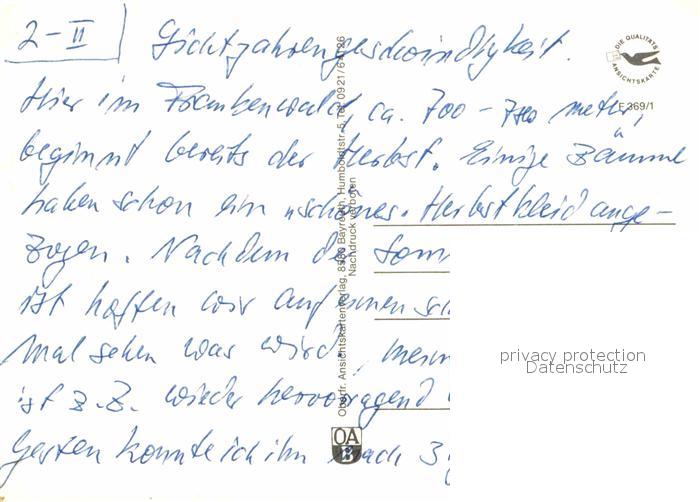 2-II
Lichtjahrengeschwindigkeit.
Hier im Frankenwald, ca. 700 - 750 meter,
beginnt bereits der Herbst. Einige Bäume
haben schon ein "schönes" Herbstkleid ange-
zogen. Nachdem de Som
ist hoffen wir auf einen
mal sehen was wird,
ist z.Z. wieder hervorragend
Gestern konnte ich ihn nach 3
DIE QUALITÄTS ANSICHTSKARTE
F 369/1
Oberfr. Ansichtskartenverlag, 8580 Bayreuth, Humboldtstr. 5, Tel. 0921/64126
Nachdruck verboten
OAB
privacy protection
Datenschutz